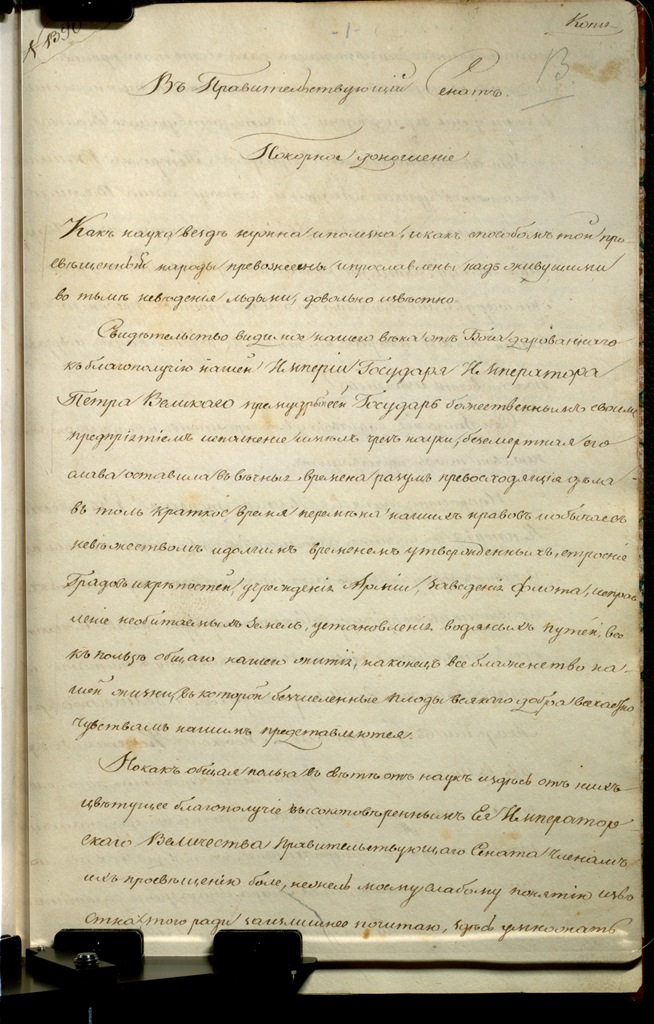 N 1390
- 1 -
Копія
В.
Въ Правительствующій Сенатъ.
Покорное доношеніе
Какъ наука вездѣ нужна и полезна, и какъ способомъ той про-
свѣщенный народы превознесены и прославлены надъ живущими
во тьмѣ невѣденія людьми, довольно извѣстно.
Свидѣтельство видимое нашего вѣка отъ Бога дарованнаго
къ благополучію нашей Имперіи Государя Императора
Петра Великаго премудрѣйшей Государь божественнымъ своимъ
предпріятіемъ исполненіе имѣлъ чрезъ науки, безсмертная его
слава оставила въ вѣчныя времена разумъ превосходящія дѣла
въ толь краткое время перемѣна нашихъ нравовъ и обычаевъ
невѣжествомъ и долгимъ временемъ утвержденныхъ, строеніе
Градовъ и крѣпостей, учрежденія Арміи, заведенія флота, исправ
леніе необитаемыхъ земель, установленія водяныхъ путей, все
къ пользѣ общаго нашего житія, на конецъ все блаженство на-
шей жизни, въ которой безчисленные плоды всякаго добра всечасно
чувствамъ нашимъ представляются.
Но какъ общая польза въ свѣтѣ отъ наукъ и здѣсь отъ нихъ
цвѣтущее благополучіе высокоповѣреннымъ Ея Император
скаго Величества Правительствующаго Сената Членамъ
ихъ просвѣщенію болѣ, нежель моему слабому понятію извѣ
стна, того ради заизлишнее почитаю, здѣсь умножать